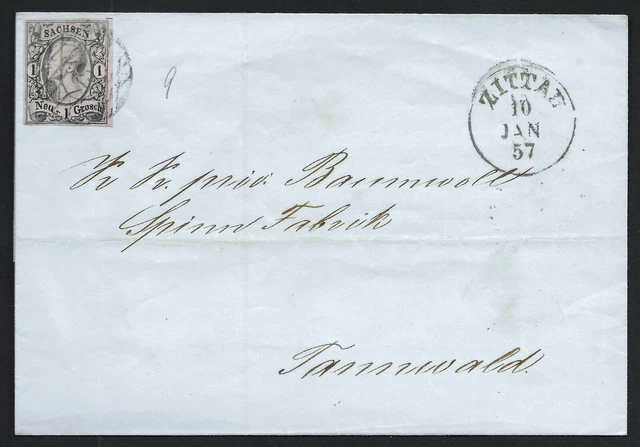 SACHSEN
1 1
Neu 1 Grosch
9
ZITTAU
10
JAN
57
K. K. priv. Baumwoll
Spinn Fabrik
Tannwald.